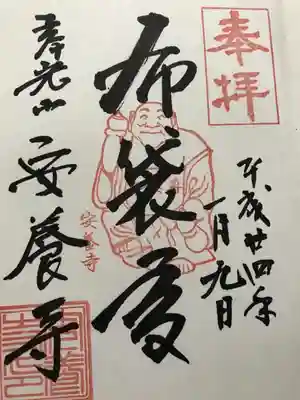 奉拝
平成廿四年
一月九日
布袋尊
安養寺
寿光山安養寺